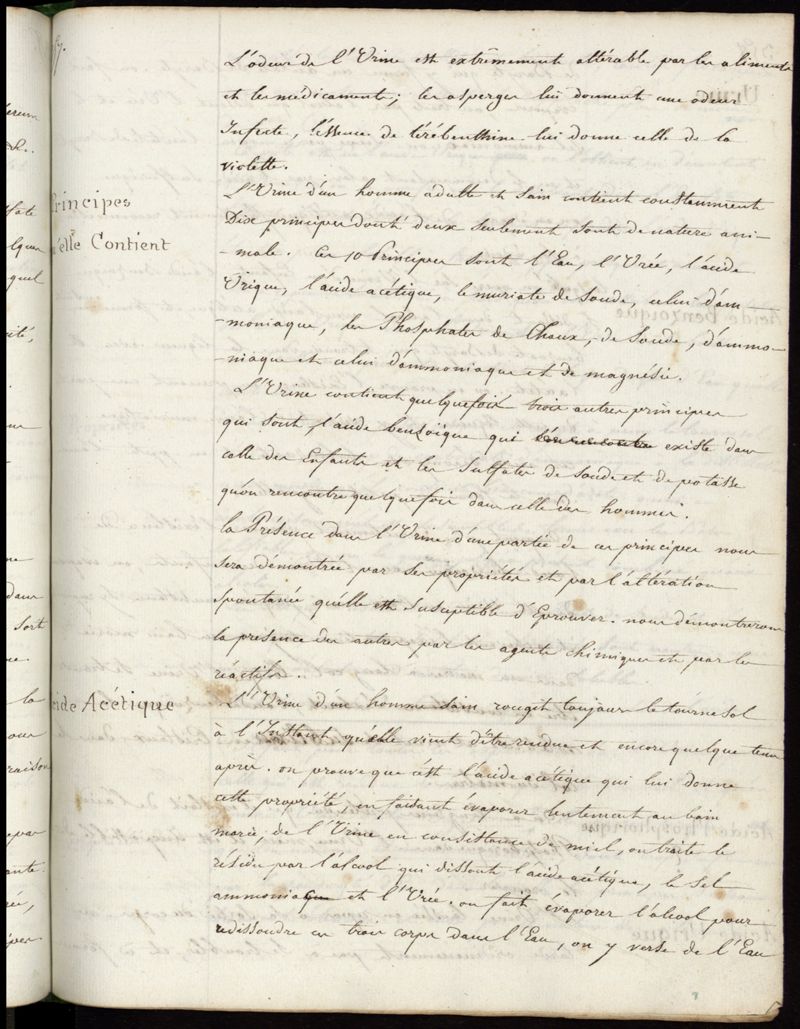 L'odeur de l'Urine est extrêmement altérable par les aliments
et les médicaments; les asperges lui donnent une odeur
Infecte, l'essence de térébenthine lui donne celle de la
violette.
Principes
qu'elle Contient
L'Urine d'un homme adulte et sain contient constamment
Dix principes dont deux seulement sont de nature ani-
-male. Ces 10 Principes sont l'Eau, l'Urée, l'acide
Urique, l'acide acétique, le muriate de Soude, celui d'am
-moniaque, les Phosphates de Chaux, de Soude, d'ammo-
-niaque et celui d'ammoniaque et de magnésie.
L'Urine contient quelquefois trois autres principes
qui sont, l'acide benzöique qui existe dans
celle des Enfants et les Sulfates de soude et de potasse
qu'on rencontre quelquefois dans celle des hommes.
la Présence dans l'Urine d'une partie de ces principes nous
sera démontrée par ses propriétés et par l'altération
spontanée qu'elle est susceptible d'Eprouver. nous démontrerons
la présence des autres par les agents chimiques et par les
réactifs.
Acide Acétique
L'Urine d'un homme sain rougit toujours le tournesol
à l'Instant qu'elle vient d'être rendue et encore quelque tems
après. on prouve que c'est l'acide acétique qui lui donne
cette propriété, en faisant évaporer lentement au bain
marie, de l'Urine en consistance de miel, on traite le
résidu par l'alcool qui dissout l'acide acétique, le sel
ammoniaque et l'Urée. on fait évaporer l'alcool pour
redissoudre ces trois corps dans l'Eau, on y verse de l'Eau